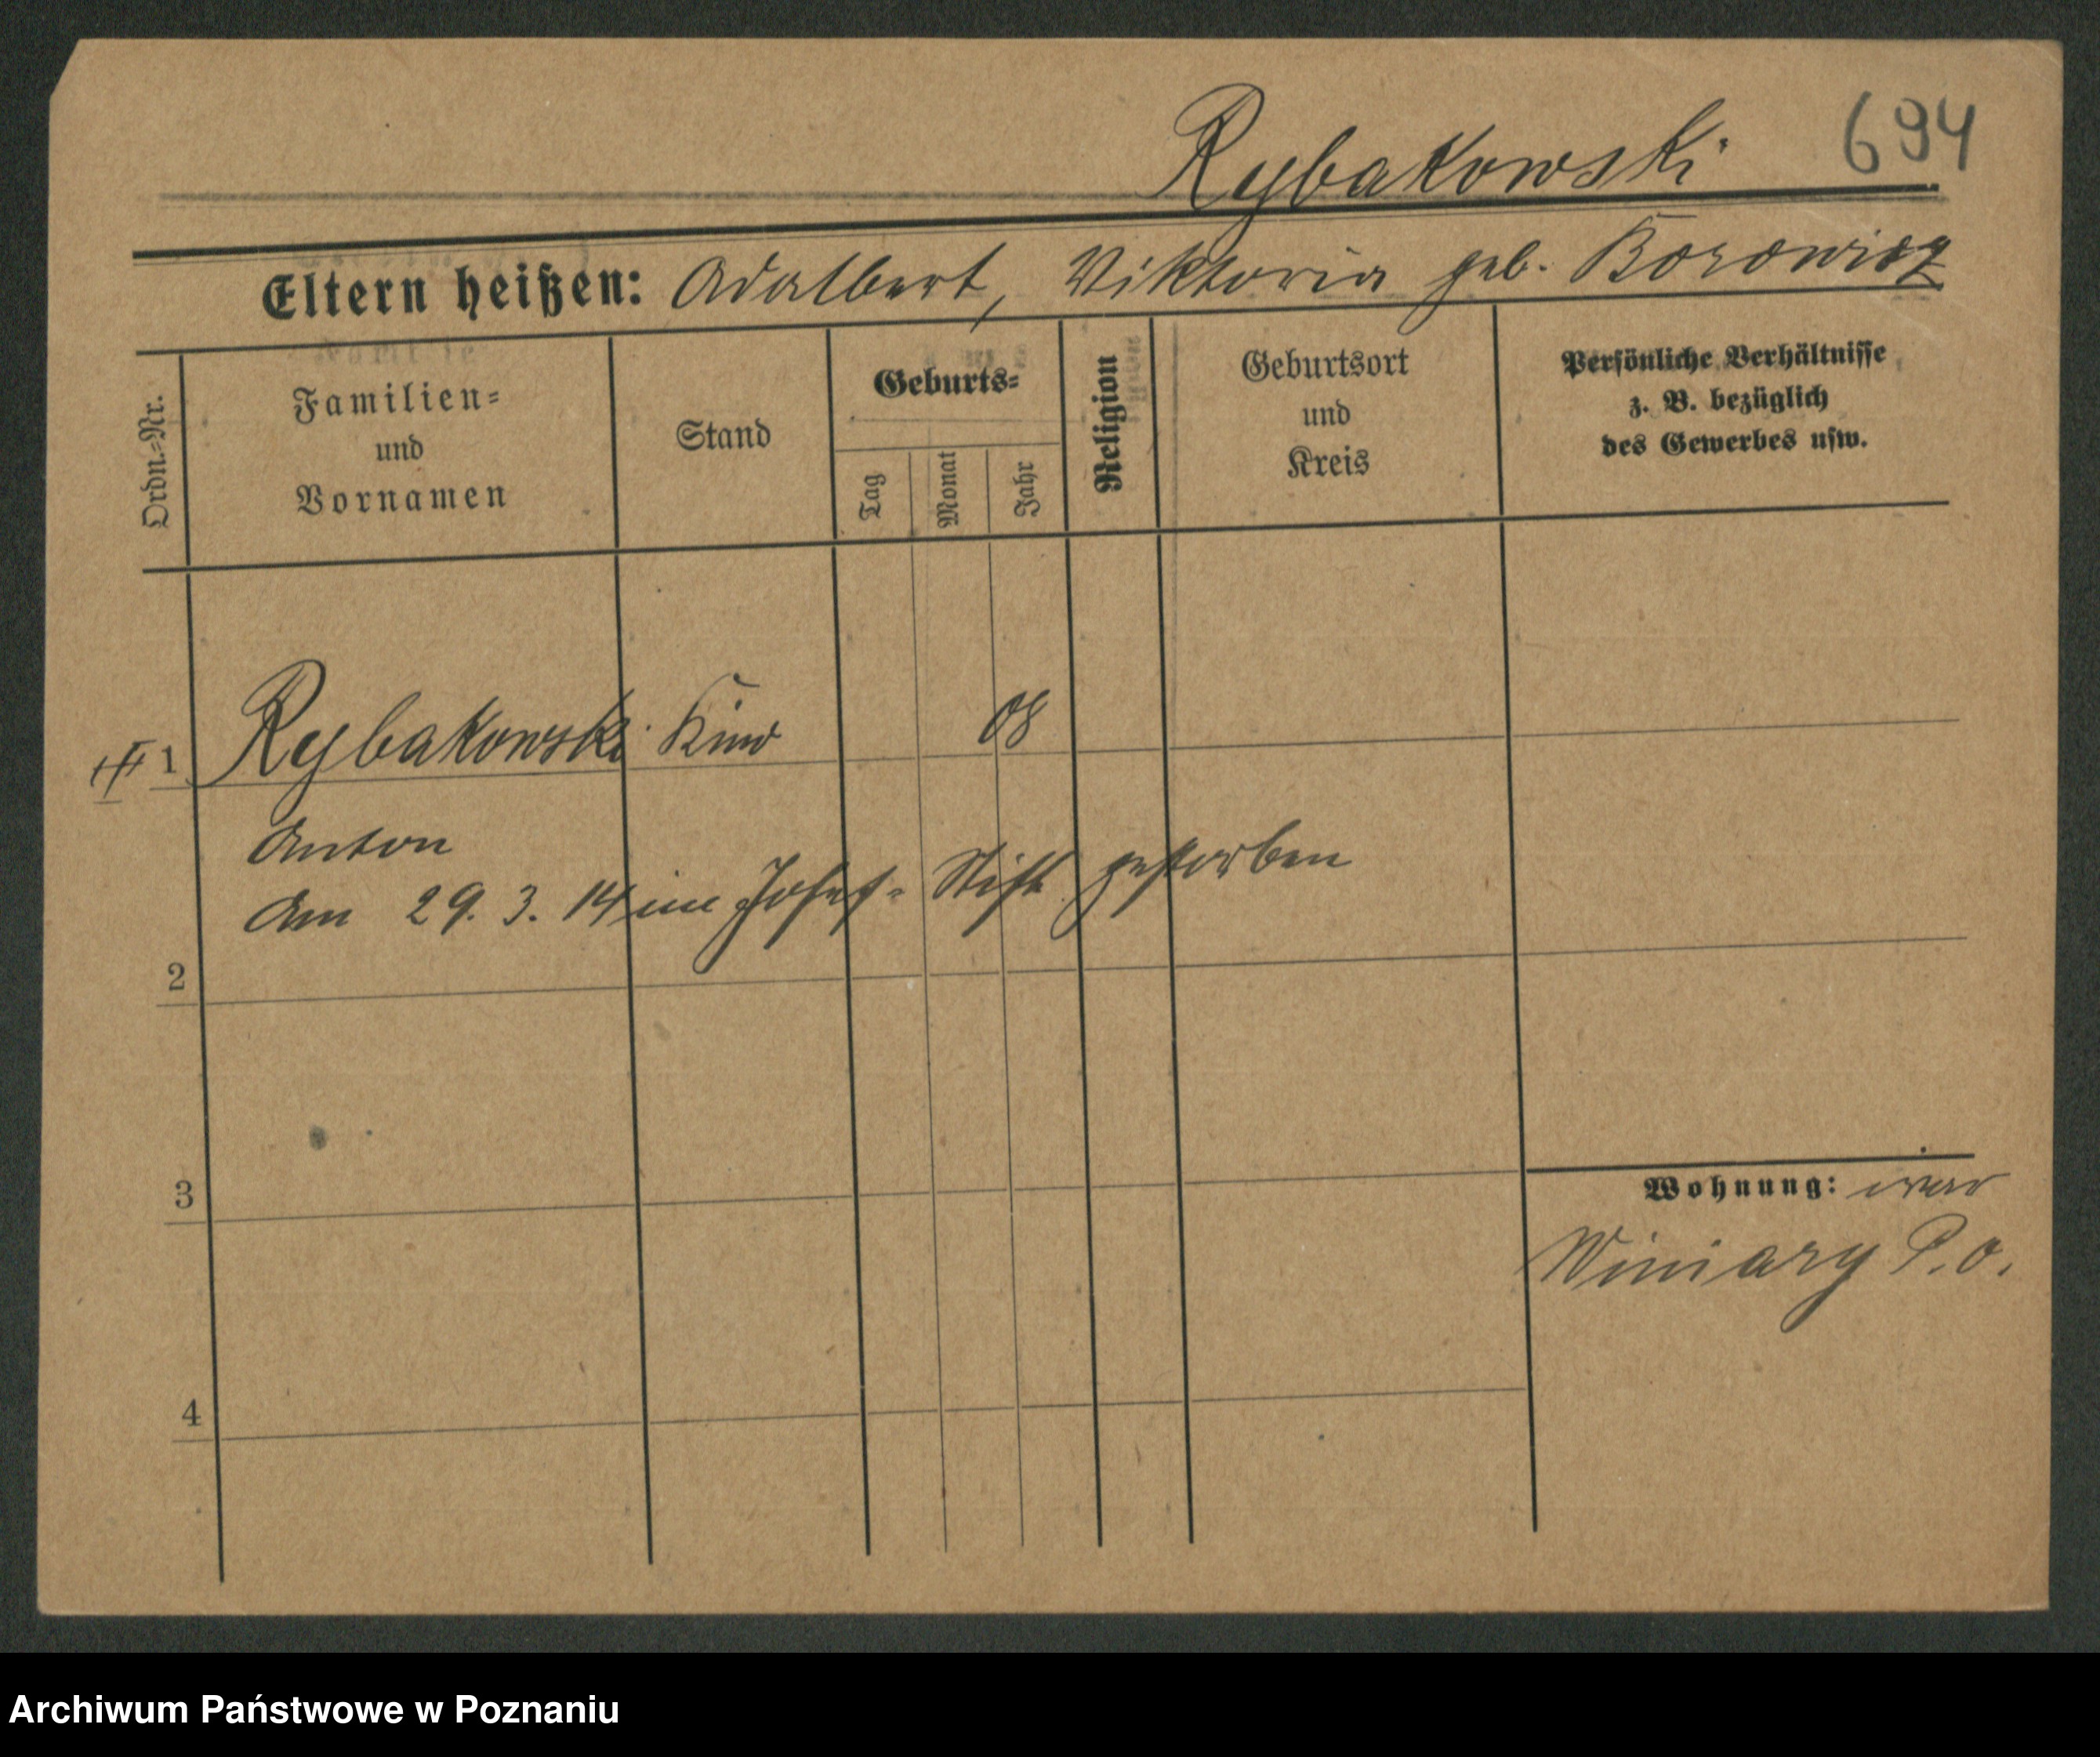 Rybakowski 694
Eltern heißen: Adalbert, Viktoria geb. Borowicz
Ordn.=Nr.
Familien=
und
Vornamen
Stand
Geburts=
Tag
Monat
Jahr
Religion
Geburtsort
und
Kreis
Persönliche Verhältnisse
z. B. bezüglich
des Gewerbes usw.
1 Rybakowski Kind 08
Anton
Am 29. 3. 14 im Josef= Stift gestorben
2
3
Wohnung:
Winiary P.O.
4
Archiwum Państwowe w Poznaniu